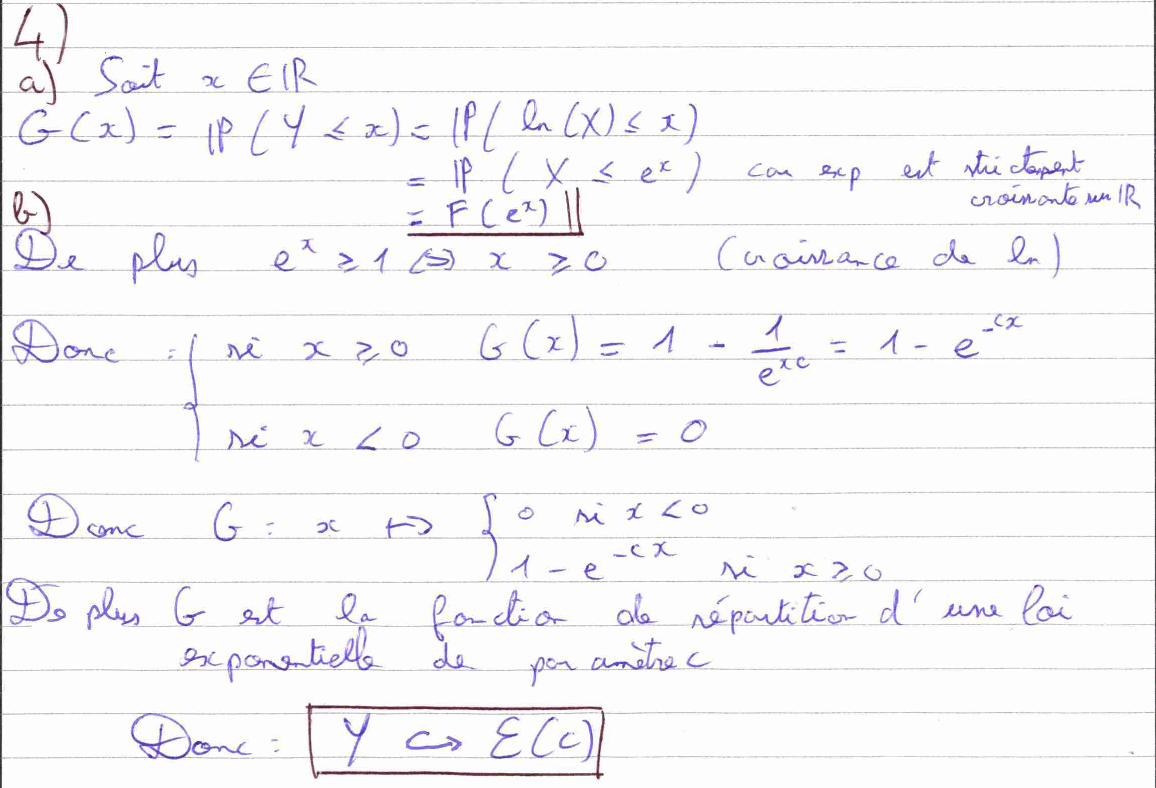 4)
a) Soit x ∈ ℝ
G(x) = ℙ(Y ≤ x) = ℙ(ln(X) ≤ x)
= ℙ(X ≤ e^x) car exp est strictement croissante sur ℝ
b) = F(e^x)
De plus e^x ≥ 1 ⇔ x ≥ 0 (croissance de ln)
Donc : { si x ≥ 0 G(x) = 1 - 1/e^{xc} = 1 - e^{-cx}
si x < 0 G(x) = 0
Donc G : x ↦ { 0 si x < 0
1 - e^{-cx} si x ≥ 0
De plus G est la fonction de répartition d'une loi
exponentielle de paramètre c
Donc : Y ↪ Ɛ(c)